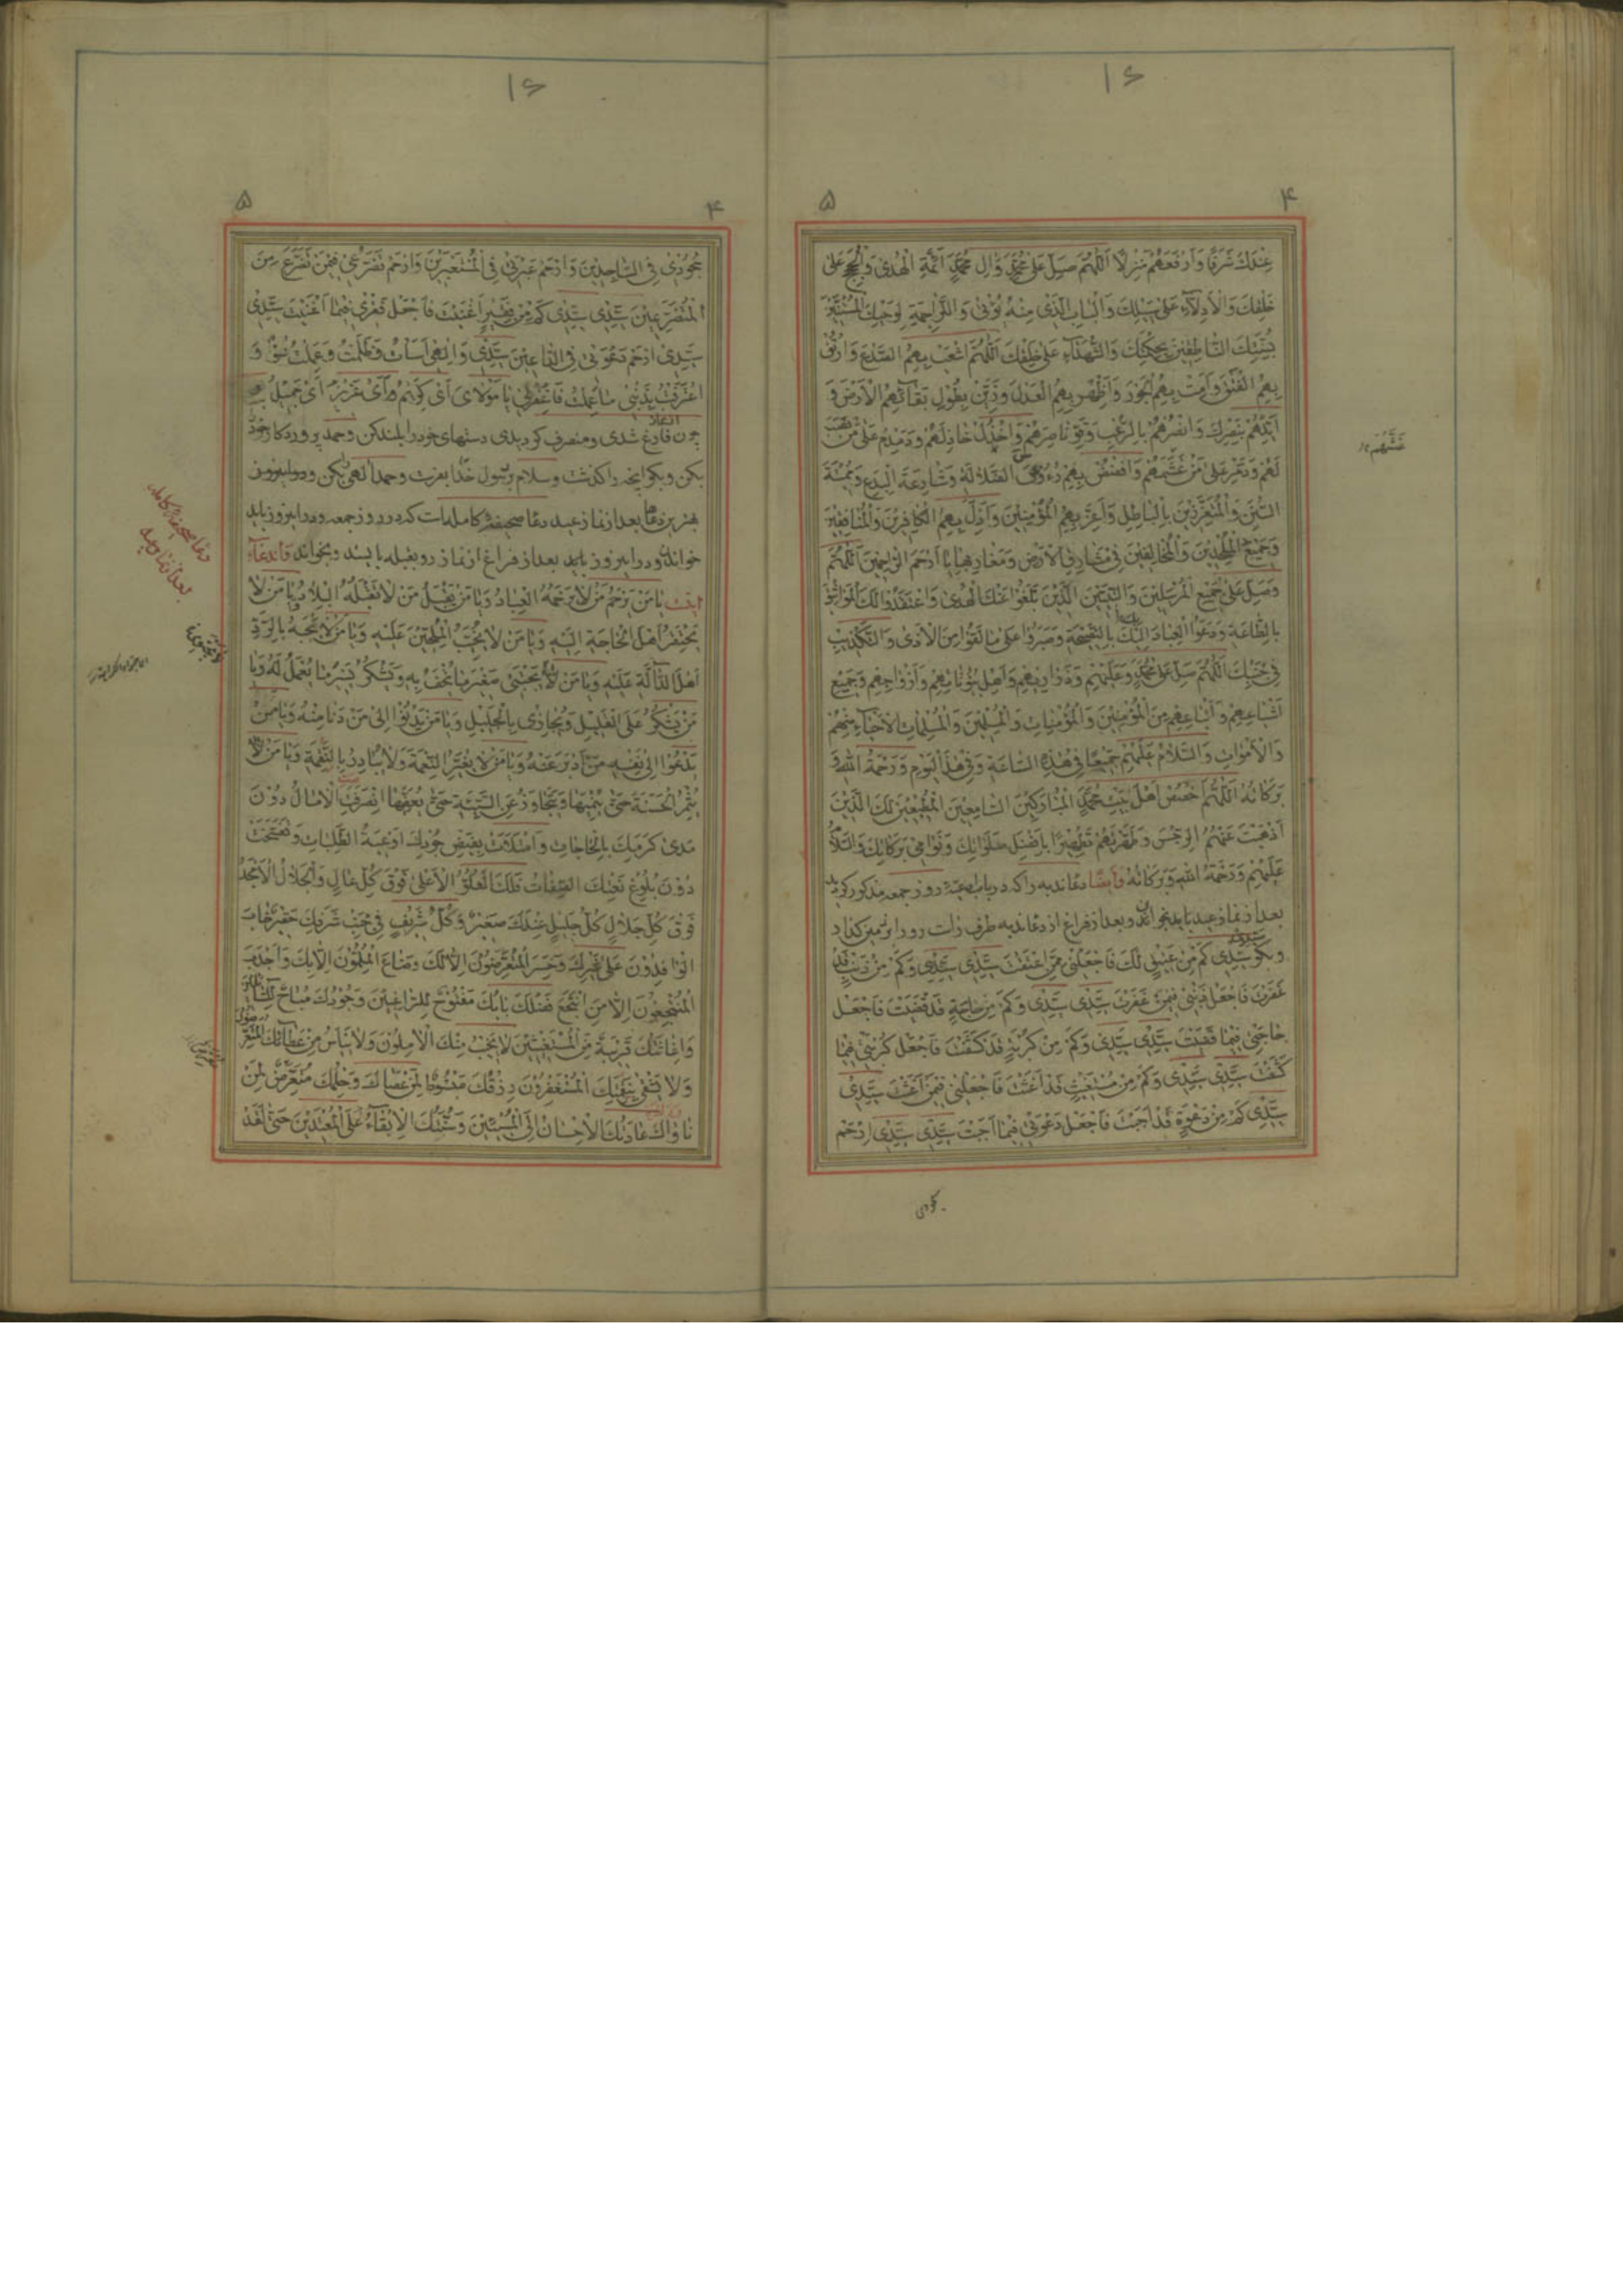 ۱۶
۴ ۵
عِنْدَكَ شَرَفًا وَاَرْفَعَهُمْ مَنْزِلًا اَللّٰهُمَّ صَلِّ عَلٰى مُحَمَّدٍ وَاٰلِ مُحَمَّدٍ اَئِمَّةِ الْهُدٰى وَالْحُجَجِ عَلٰى
خَلْقِكَ وَالْاَدِلّٰاءِ عَلٰى سَبِيلِكَ وَالْبَابِ الَّذِى مِنْهُ يُؤْتٰى وَالتَّرَاجِمَةِ لِوَحْيِكَ الْمُسْتَنَّةِ
بِسُنَّتِكَ النَّاطِقِينَ بِحِكْمَتِكَ وَالشُّهَدَاءِ عَلٰى خَلْقِكَ اَللّٰهُمَّ اشْعَبْ بِهِمُ الصَّدْعَ وَارْتُقْ
بِهِمُ الْفَتْقَ وَاَمِتْ بِهِمُ الْجَوْرَ وَاَظْهِرْ بِهِمُ الْعَدْلَ وَزَيِّنْ بِطُولِ بَقَائِهِمُ الْاَرْضَ وَ
اَيِّدْهُمْ بِنَصْرِكَ وَانْصُرْهُمْ بِالرُّعْبِ وَقَوِّ نَاصِرَهُمْ وَاخْذُلْ خَاذِلَهُمْ وَدَمْدِمْ عَلٰى مَنْ نَصَبَ
لَهُمْ وَدَمِّرْ عَلٰى مَنْ غَشَمَهُمْ وَافْضُضْ بِهِمْ رُءُوسَ الضَّلَالَةِ وَشَارِعَةَ الْبِدَعِ وَمُمِيتَةَ
السُّنَنِ وَالْمُتَعَزِّزِينَ بِالْبَاطِلِ وَاَعِزَّ بِهِمُ الْمُؤْمِنِينَ وَاَذِلَّ بِهِمُ الْكَافِرِينَ وَالْمُنَافِقِينَ
وَجَمِيعَ الْمُلْحِدِينَ وَالْمُخَالِفِينَ فِى مَشَارِقِ الْاَرْضِ وَمَغَارِبِهَا يَا اَرْحَمَ الرَّاحِمِينَ اَللّٰهُمَّ
وَصَلِّ عَلٰى جَمِيعِ الْمُرْسَلِينَ وَالنَّبِيِّينَ الَّذِينَ بَلَّغُوا عَنْكَ الْهُدٰى وَاعْتَقَدُوا لَكَ الْمَوَاثِيقَ
بِالطَّاعَةِ وَدَعَوُا الْعِبَادَ اِلَيْكَ بِالنَّصِيحَةِ وَصَبَرُوا عَلٰى مَا لَقُوا مِنَ الْاَذٰى وَالتَّكْذِيبِ
فِى جَنْبِكَ اَللّٰهُمَّ صَلِّ عَلٰى مُحَمَّدٍ وَعَلَيْهِمْ وَذَرَارِيهِمْ وَاَهْلِ بُيُوتَاتِهِمْ وَاَزْوَاجِهِمْ وَجَمِيعِ
اَشْيَاعِهِمْ وَاَتْبَاعِهِمْ مِنَ الْمُؤْمِنِينَ وَالْمُؤْمِنَاتِ وَالْمُسْلِمِينَ وَالْمُسْلِمَاتِ الْاَحْيَاءِ مِنْهُمْ
وَالْاَمْوَاتِ وَالسَّلَامُ عَلَيْهِمْ جَمِيعًا فِى هٰذِهِ السَّاعَةِ وَفِى هٰذَا الْيَوْمِ وَرَحْمَةُ اللّٰهِ وَ
بَرَكَاتُهُ اَللّٰهُمَّ اخْصُصْ اَهْلَ بَيْتِ مُحَمَّدٍ الْمُبَارَكِينَ السَّامِعِينَ الْمُطِيعِينَ لَكَ الَّذِينَ
اَذْهَبْتَ عَنْهُمُ الرِّجْسَ وَطَهَّرْتَهُمْ تَطْهِيرًا بِاَفْضَلِ صَلَوَاتِكَ وَنَوَامِى بَرَكَاتِكَ وَالسَّلَامُ
عَلَيْهِمْ وَرَحْمَةُ اللّٰهِ وَبَرَكَاتُهُ وَاَيضًا دعا ندبه را که در باب ادعیهٔ روز جمعه مذکور کردید
بعد از نماز عید باید بخواند وبعد از فراغ از دعا ندبه طرف راست رو را بر زمین کذارد
وبکو سَيِّدِى كَمْ مِنْ عَتِيقٍ لَكَ فَاجْعَلْنِى مِمَّنْ اَعْتَقْتَ سَيِّدِى سَيِّدِى وَكَمْ مِنْ ذَنْبٍ قَدْ
غَفَرْتَ فَاجْعَلْ ذَنْبِى فِيمَا غَفَرْتَ سَيِّدِى سَيِّدِى وَكَمْ مِنْ حَاجَةٍ قَدْ قَضَيْتَ فَاجْعَلْ
حَاجَتِى فِيمَا قَضَيْتَ سَيِّدِى سَيِّدِى وَكَمْ مِنْ كُرْبَةٍ قَدْ كَشَفْتَ فَاجْعَلْ كُرْبَتِى فِيمَا
كَشَفْتَ سَيِّدِى سَيِّدِى وَكَمْ مِنْ مُسْتَغِيثٍ قَدْ اَغَثْتَ فَاجْعَلْنِى فِيمَنْ اَغَثْتَ سَيِّدِى
سَيِّدِى كَمْ مِنْ دَعْوَةٍ قَدْ اَجَبْتَ فَاجْعَلْ دَعْوَتِى فِيمَا اَجَبْتَ سَيِّدِى سَيِّدِى اِرْحَمْ
۱۶
۴ ۵
سُجُودِى فِى السَّاجِدِينَ وَارْحَمْ عَبْرَتِى فِى الْمُسْتَعْبِرِينَ وَارْحَمْ تَضَرُّعِى فِيمَنْ تَضَرَّعَ مِنَ
الْمُتَضَرِّعِينَ سَيِّدِى سَيِّدِى كَمْ مِنْ فَقِيرٍ اَغْنَيْتَ فَاجْعَلْ فَقْرِى فِيمَا اَغْنَيْتَ سَيِّدِى
سَيِّدِى ارْحَمْ دَعْوَتِى فِى الدَّاعِينَ سَيِّدِى وَاِلٰهِى اَسَأْتُ وَظَلَمْتُ وَعَمِلْتُ سُوءًا وَ
اعْتَرَفْتُ بِذَنْبِى مَا عَمِلْتُ فَاغْفِرْ لِى يَا مَوْلَاىَ اَىْ كَرِيمُ اَىْ عَزِيزُ اَىْ جَمِيلُ
چون فارغ شدی ومنصرف کردیدی دستهای خود را بلند کن وحمد پروردکار خود
بکن وبکو انچه را کذشت وسلام برسول خدا بفرست وحمد الهی بکن ودر این روز
بهترین دعاها بعد از نماز عید دعا صحیفهٔ کامله است که در روز جمعه ودر این روز باید
خواند ودر این روز باید بعد از فراغ از نماز رو بقبله بایستد وبخواند واین دعا
اینست يَا مَنْ يَرْحَمُ مَنْ لَا يَرْحَمُهُ الْعِبَادُ وَيَا مَنْ يَقْبَلُ مَنْ لَا تَقْبَلُهُ الْبِلَادُ وَيَا مَنْ لَا
يَحْتَقِرُ اَهْلَ الْحَاجَةِ اِلَيْهِ وَيَا مَنْ لَا يُخَيِّبُ الْمُلِحِّينَ عَلَيْهِ وَيَا مَنْ لَا يَجْبَهُ بِالرَّدِّ
اَهْلَ الدَّالَّةِ عَلَيْهِ وَيَا مَنْ يَجْتَبِى صَغِيرَ مَا يُتْحَفُ بِهِ وَيَشْكُرُ يَسِيرَ مَا يُعْمَلُ لَهُ وَيَا
مَنْ يَشْكُرُ عَلَى الْقَلِيلِ وَيُجَازِى بِالْجَلِيلِ وَيَا مَنْ يَدْنُوا اِلٰى مَنْ دَنَا مِنْهُ وَيَا مَنْ
يَدْعُوا اِلٰى نَفْسِهِ مَنْ اَدْبَرَ عَنْهُ وَيَا مَنْ لَا يُغَيِّرُ النِّعْمَةَ وَلَا يُبَادِرُ بِالنَّقِمَةِ وَيَا مَنْ
يُثْمِرُ الْحَسَنَةَ حَتّٰى يُنْمِيَهَا وَيَتَجَاوَزُ عَنِ السَّيِّئَةِ حَتّٰى يُعَفِّيَهَا انْصَرَفَتِ الْاٰمَالُ دُونَ
مَدٰى كَرَمِكَ بِالْحَاجَاتِ وَامْتَلَاَتْ بِفَيْضِ جُودِكَ اَوْعِيَةُ الطَّلِبَاتِ وَتَفَسَّخَتْ
دُونَ بُلُوغِ نَعْتِكَ الصِّفَاتُ فَلَكَ الْعُلُوُّ الْاَعْلٰى فَوْقَ كُلِّ عَالٍ وَالْجَلَالُ الْاَمْجَدُ
فَوْقَ كُلِّ جَلَالٍ كُلُّ جَلِيلٍ عِنْدَكَ صَغِيرٌ وَكُلُّ شَرِيفٍ فِى جَنْبِ شَرَفِكَ حَقِيرٌ خَابَ
الْوَافِدُونَ عَلٰى غَيْرِكَ وَخَسِرَ الْمُتَعَرِّضُونَ اِلَّا لَكَ وَضَاعَ الْمُلِمُّونَ اِلَّا بِكَ وَاَجْدَبَ
الْمُنْتَجِعُونَ اِلَّا مَنِ انْتَجَعَ فَضْلَكَ بَابُكَ مَفْتُوحٌ لِلرَّاغِبِينَ وَجُودُكَ مُبَاحٌ لِلسَّائِلِينَ
وَاِغَاثَتُكَ قَرِيبَةٌ مِنَ الْمُسْتَغِيثِينَ لَا يَخِيبُ مِنْكَ الْاٰمِلُونَ وَلَا يَيْأَسُ مِنْ عَطَائِكَ الْمُتَعَرِّضُونَ
وَلَا يَشْقٰى بِنَقِمَتِكَ الْمُسْتَغْفِرُونَ رِزْقُكَ مَبْسُوطٌ لِمَنْ عَصَاكَ وَحِلْمُكَ مُتَعَرِّضٌ لِمَنْ
نَاوَاكَ عَادَتُكَ الْاِحْسَانُ اِلَى الْمُسِيئِينَ وَسُنَّتُكَ الْاِبْقَاءُ عَلَى الْمُعْتَدِينَ حَتّٰى لَقَدْ
دعا صحیفه کامله
بعد از نماز عید